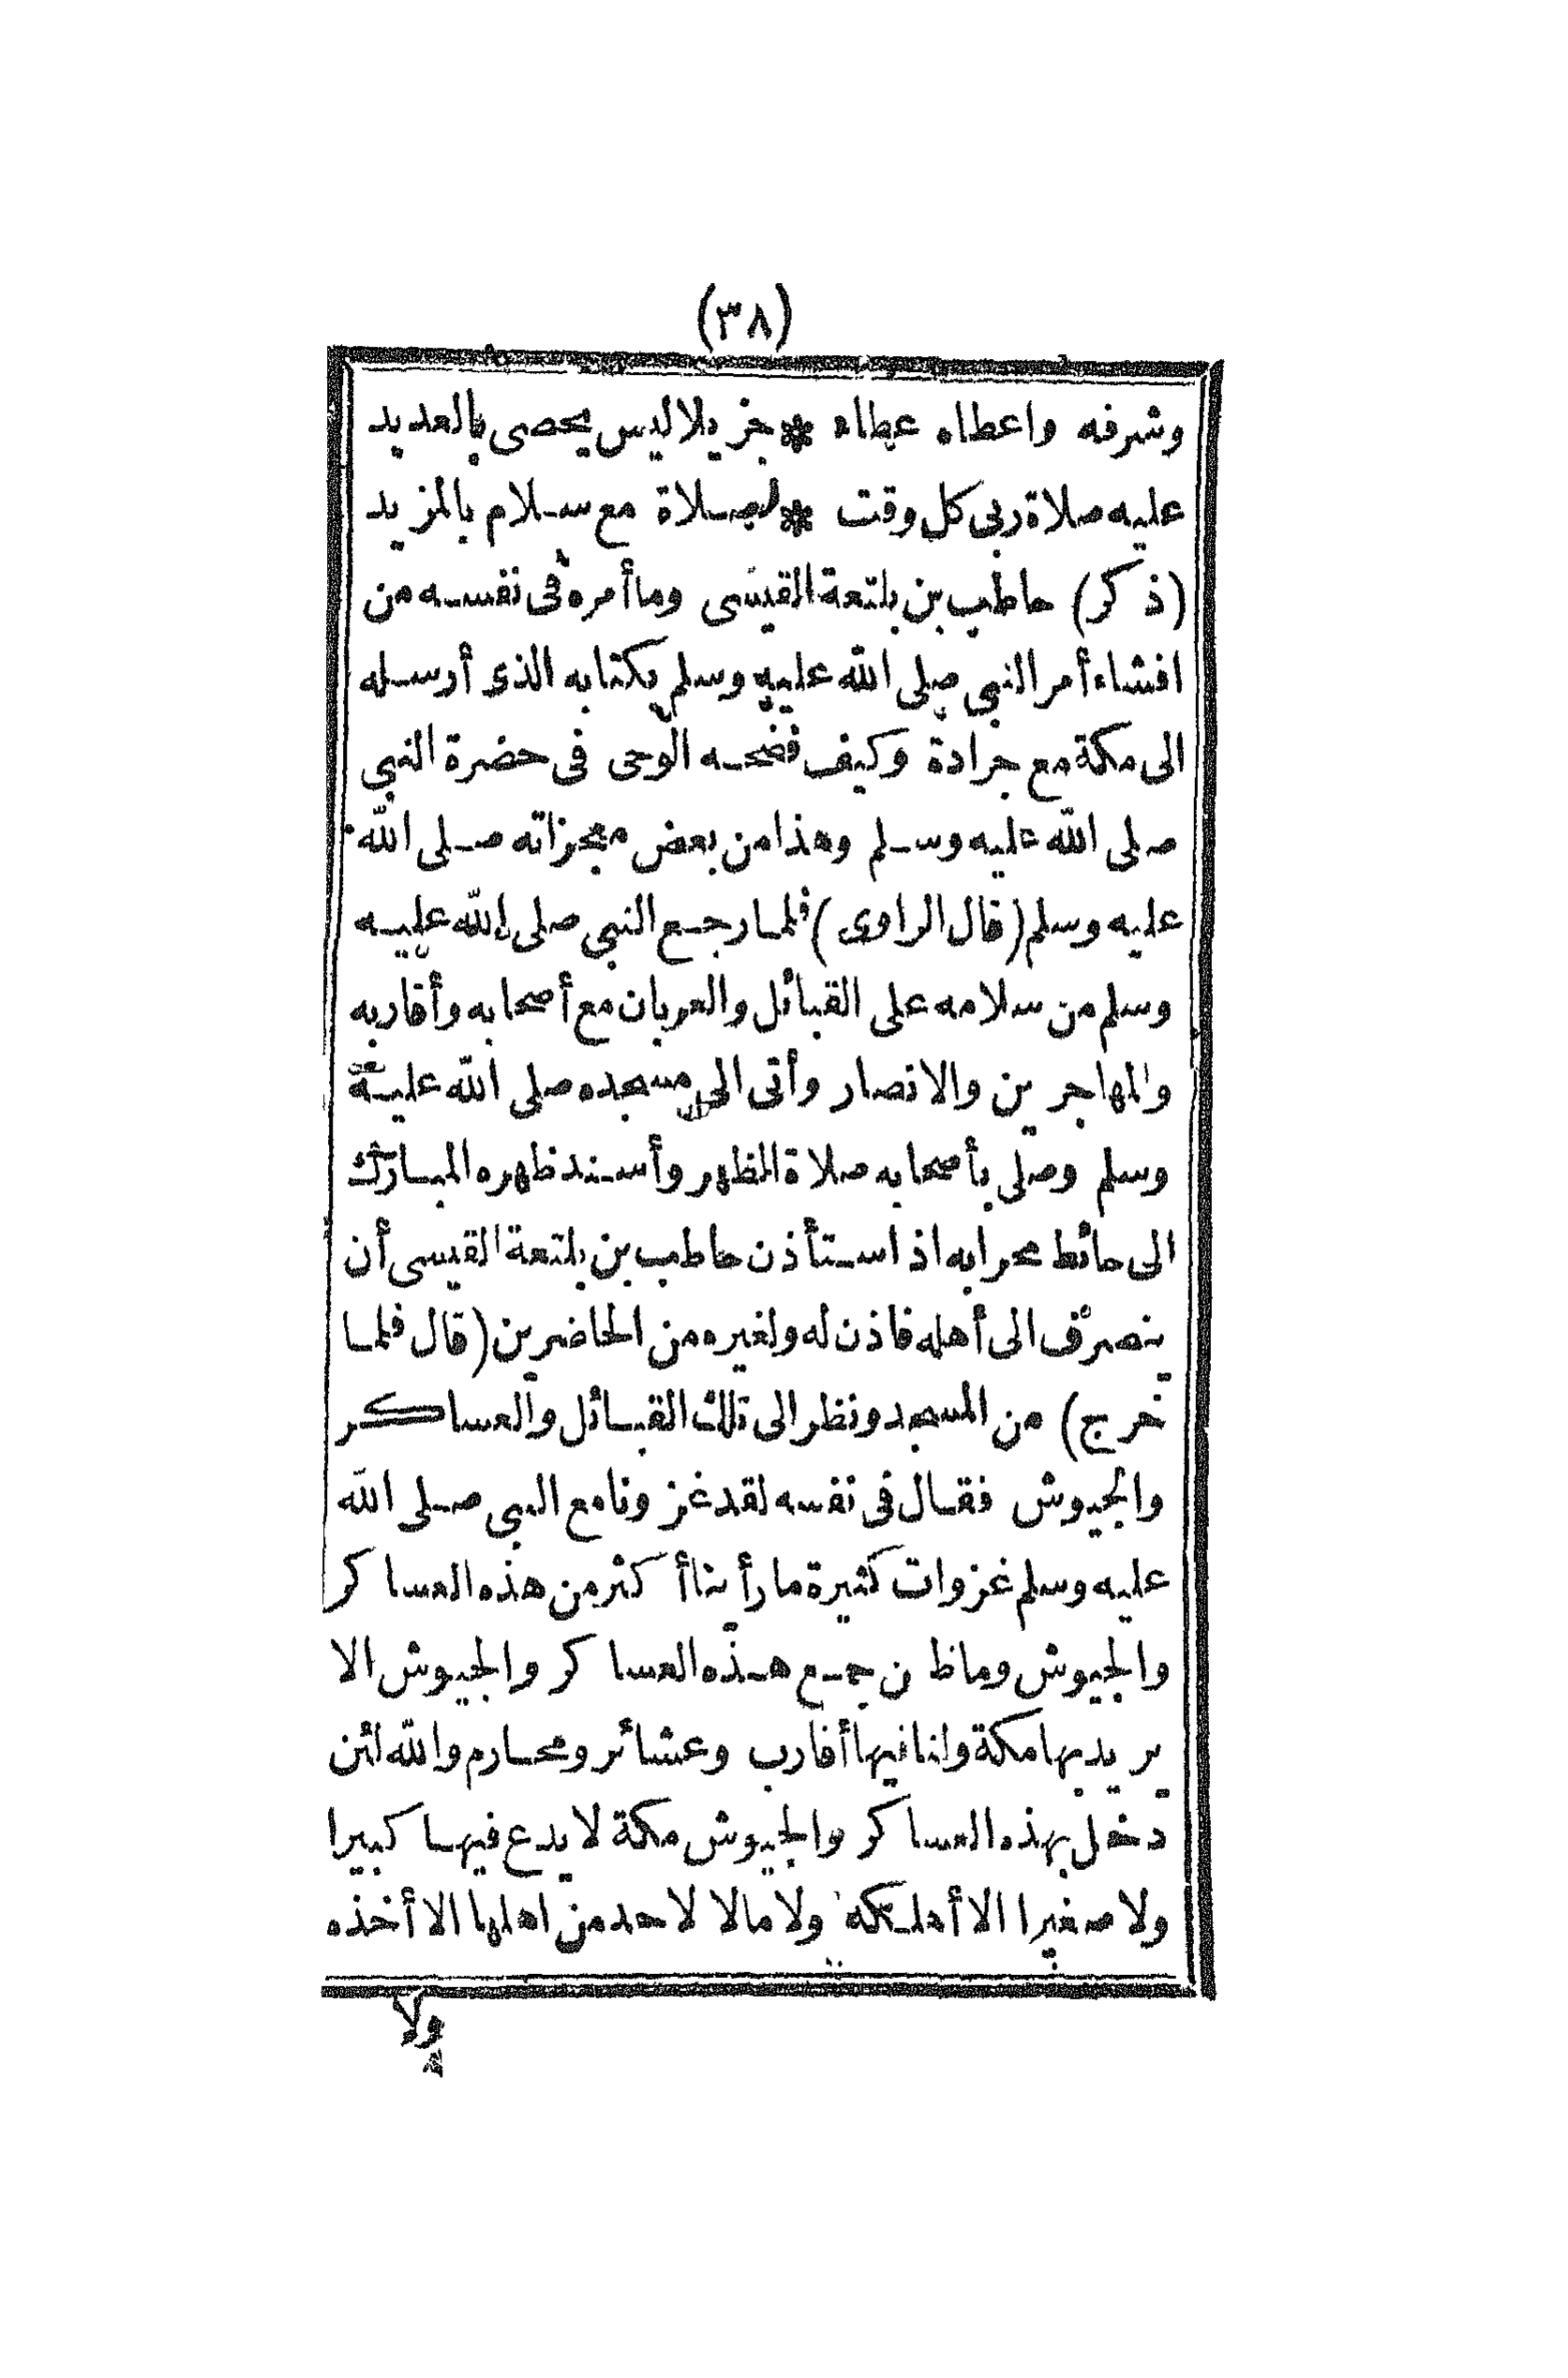 (٣٨)
وشرفه واعطاه عطاه * جزيلا ليس يحصى بالعديد
عليه صلاة ربى كل وقت * لصلاة مع سلام بالمزيد
(ذكر) حاطب بن بلتعة القيسى وما أمره فى نفسه من
افشاء أمر النبى صلى الله عليه وسلم بكتابه الذى أرسله
الى مكة مع جرادة وكيف فضحه الوحى فى حضرة النبى
صلى الله عليه وسلم وهذا من بعض معجزاته صلى الله
عليه وسلم (قال الراوى) فلما رجع النبى صلى الله عليه
وسلم من سلامه على القبائل والعربان مع أصحابه وأقاربه
والمهاجرين والانصار وأتى الى مسجده صلى الله عليه
وسلم وصلى بأصحابه صلاة الظهر وأسند ظهره المبارك
الى حائط محرابه اذ استأذن حاطب بن بلتعة القيسى أن
ينصرف الى أهله فاذن له ولغيره من الحاضرين (قال فلما
خرج) من المسجد ونظر الى تلك القبائل والعساكر
والجيوش فقال فى نفسه لقد غزونا مع النبى صلى الله
عليه وسلم غزوات كثيرة ما رأينا أكثر من هذه العساكر
والجيوش وما ظن جمع هذه العساكر والجيوش الا
يريد بها مكة ولنا فيها أقارب وعشائر ومحارم والله لئن
دخل بهذه العساكر والجيوش مكة لا يدع فيها كبيرا
ولا صغيرا الا أهلكه ولا مالا لاحد من اهلها الا أخذه
ولا